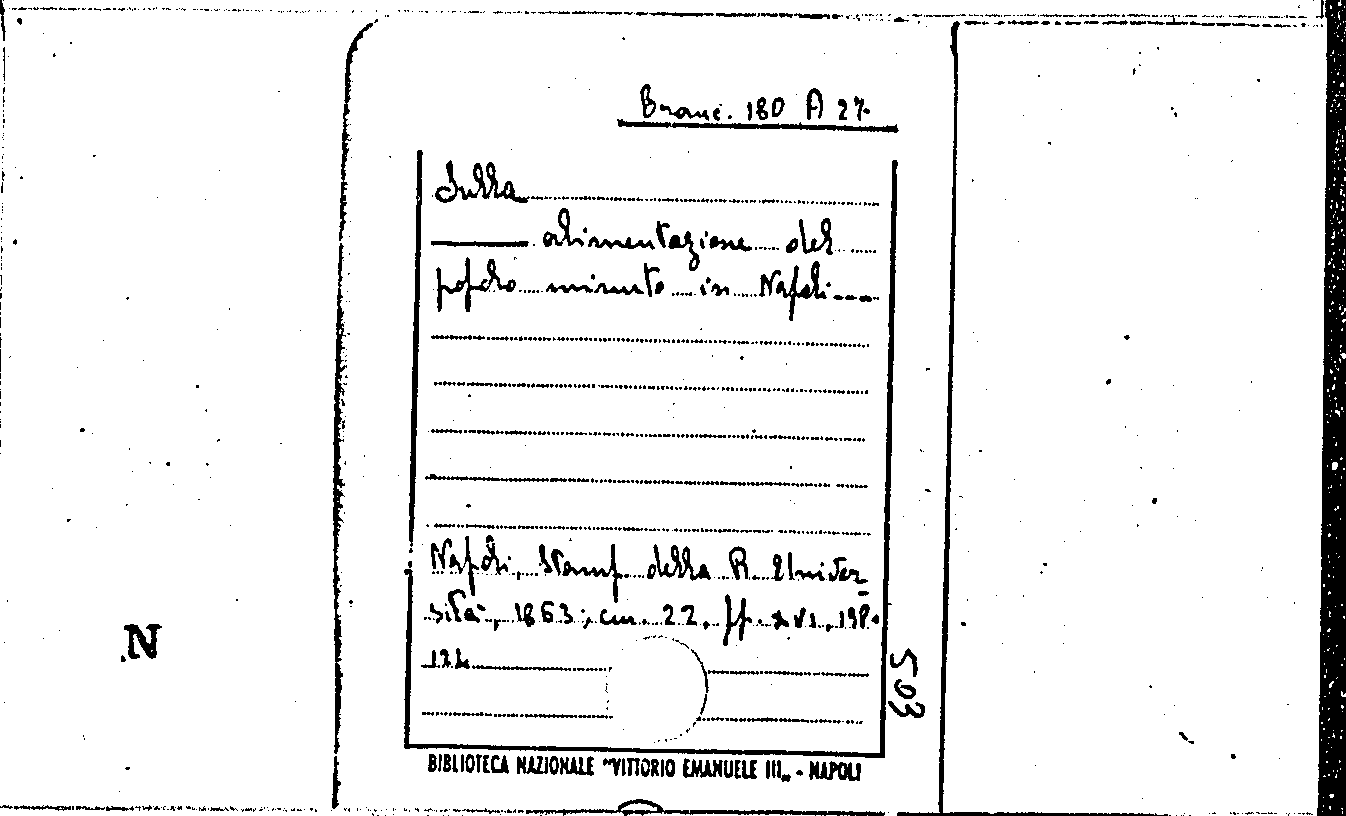 Branc. 180 A 27.
Sulla
alimentazione del
popolo minuto in Napoli
Napoli, Stamp. della R. Univer
sità, 1863; cm. 22, pp. XVI, 198.
124
503
N
BIBLIOTECA NAZIONALE "VITTORIO EMANUELE III„ - NAPOLI